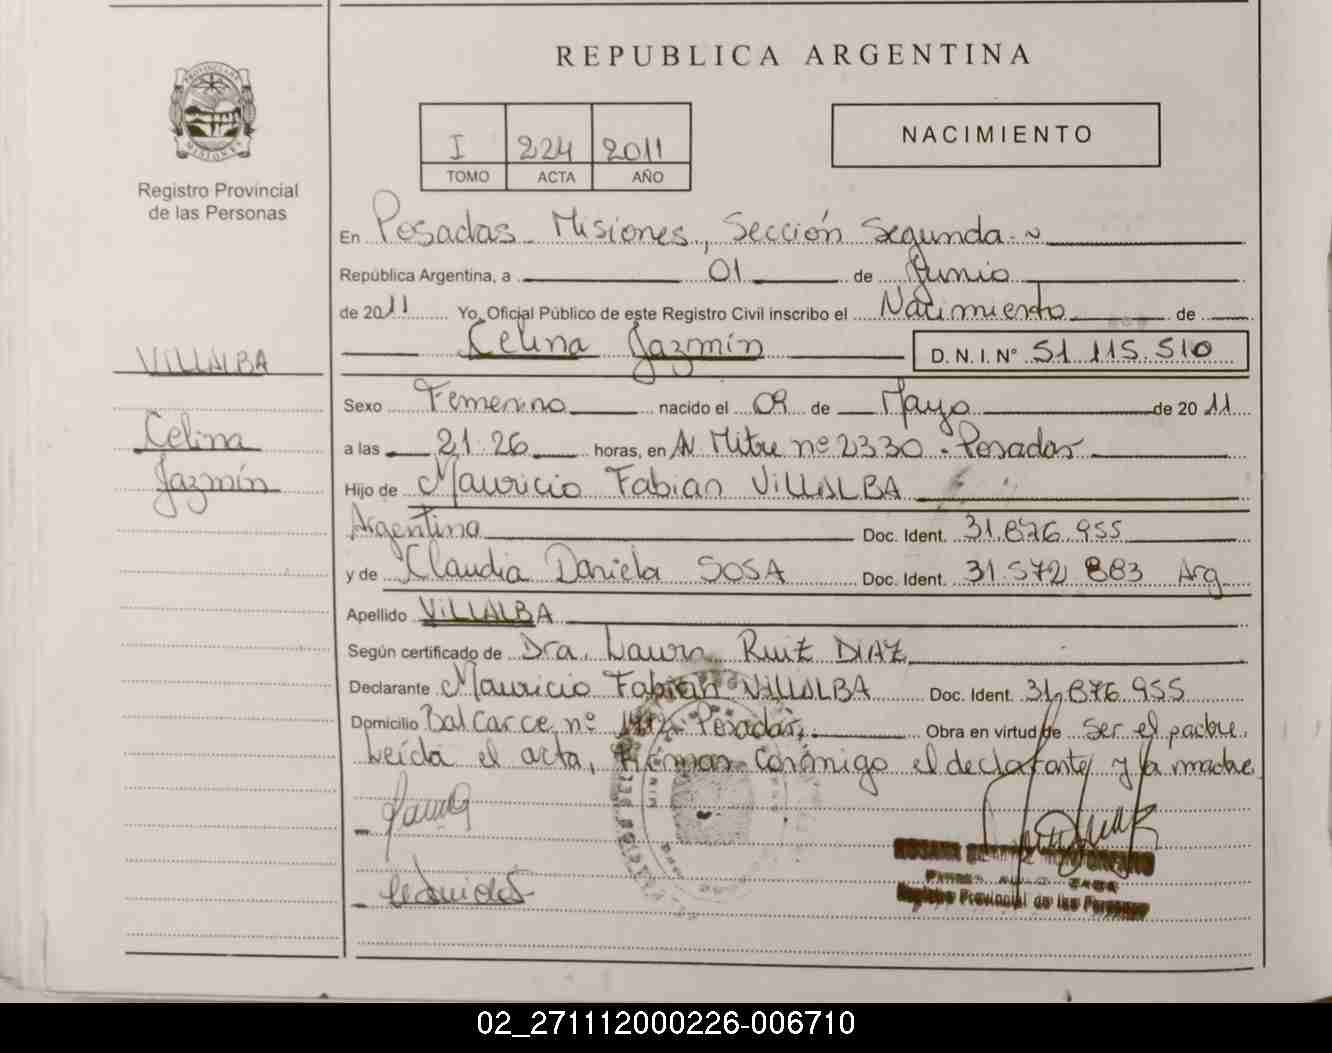 REPUBLICA ARGENTINA
PROVINCIA DE
MISIONES
Registro Provincial
de las Personas
I 224 2011
TOMO ACTA AÑO
NACIMIENTO
En Posadas Misiones, Sección Segunda
República Argentina, a 01 de Junio
de 2011 Yo, Oficial Público de este Registro Civil inscribo el Nacimiento de
Celina Jazmín D.N.I. Nº 51.115.510
VILLALBA
Celina
Jazmín
Sexo Femenino nacido el 09 de Mayo de 2011
a las 21.26 horas, en Av Mitre nº 2330 - Posadas
Hijo de Mauricio Fabian VILLALBA
Argentina Doc. Ident. 31.876.955
y de Claudia Daniela SOSA Doc. Ident. 31.572.883 Arg
Apellido VILLALBA
Según certificado de Dra. Laura RUIZ DIAZ
Declarante Mauricio Fabian VILLALBA Doc. Ident. 31.876.955
Domicilio Balcarce nº Posadas, Obra en virtud de ser el padre.
Leída el acta, firman conmigo el declarante y la madre
Registro Provincial de las Personas
02_271112000226-006710